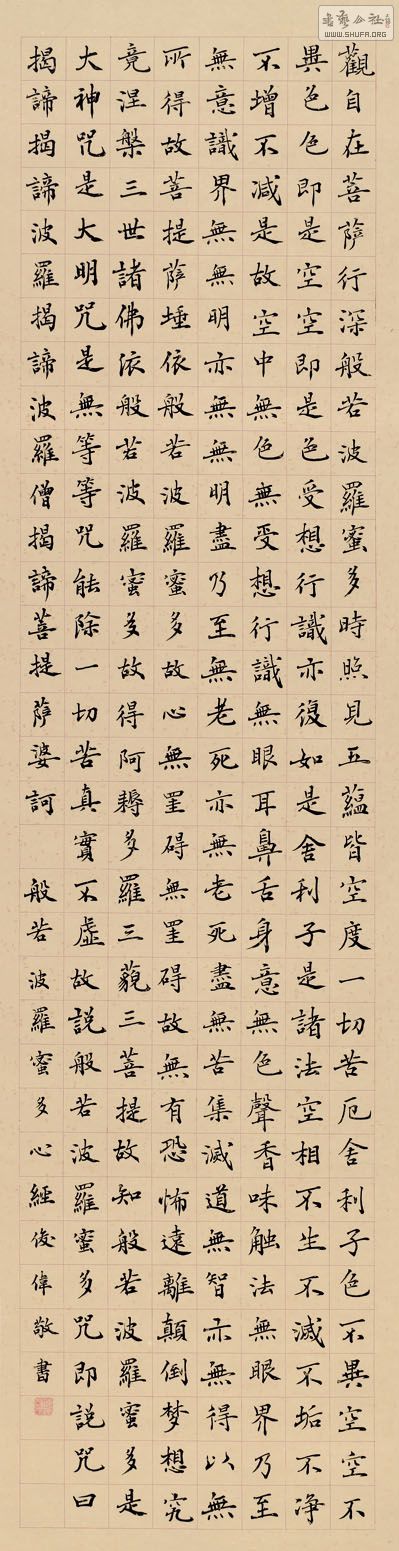 觀自在菩薩行深般若波羅蜜多時照見五蘊皆空度一切苦厄舍利子色不異空空不
異色色即是空空即是色受想行識亦復如是舍利子是諸法空相不生不滅不垢不净
不增不減是故空中無色無受想行識無眼耳鼻舌身意無色聲香味触法無眼界乃至
無意識界無無明亦無無明盡乃至無老死亦無老死盡無苦集滅道無智亦無得以無
所得故菩提薩埵依般若波羅蜜多故心無罣碍無罣碍故無有恐怖遠離顛倒梦想究
竟涅槃三世諸佛依般若波羅蜜多故得阿耨多羅三藐三菩提故知般若波羅蜜多是
大神咒是大明咒是無等等咒能除一切苦真實不虛故説般若波羅蜜多咒即説咒曰
揭諦揭諦波羅揭諦波羅僧揭諦菩提薩婆訶 般若波羅蜜多心經俊偉敬書
WWW.SHUFA.ORG